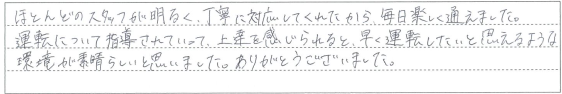 ほとんどのスタッフが明るく、丁寧に対応してくれたから、毎日楽しく通えました。
運転について指導されていって、上達を感じられると、早く運転したいと思えるような
環境が素晴らしいと思いました。ありがとうございました。